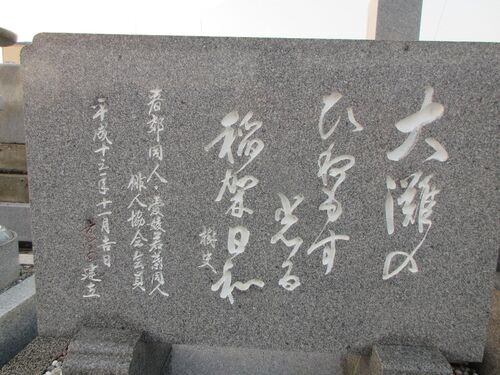 大灘の
ひねもす
光る
稲架日和
樹史
春郊同人・愛媛若葉同人
俳人協会会員
平成十三年十一月吉日
建立